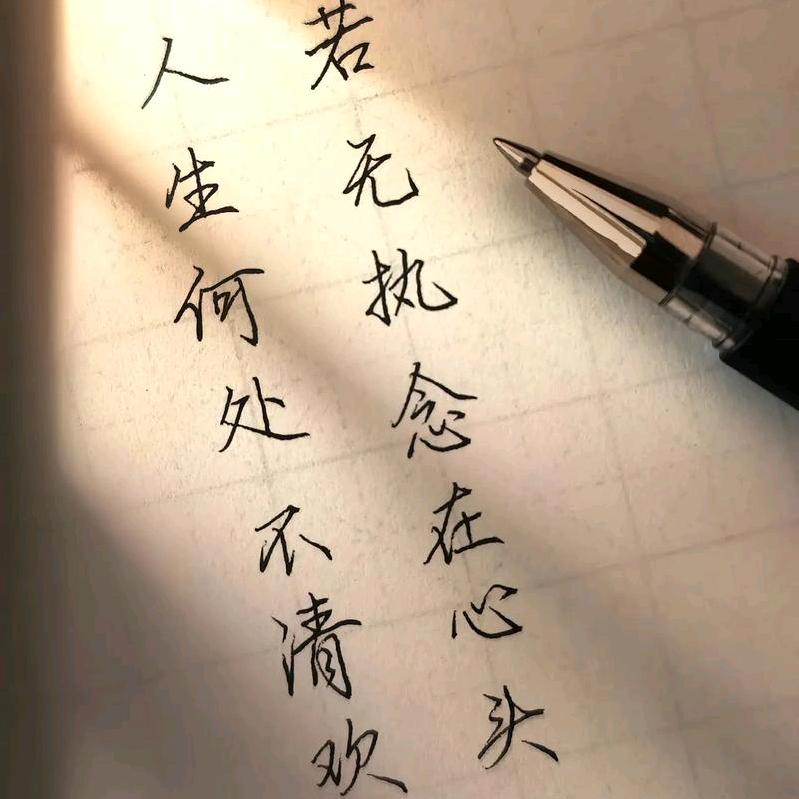 若无执念在心头
人生何处不清欢